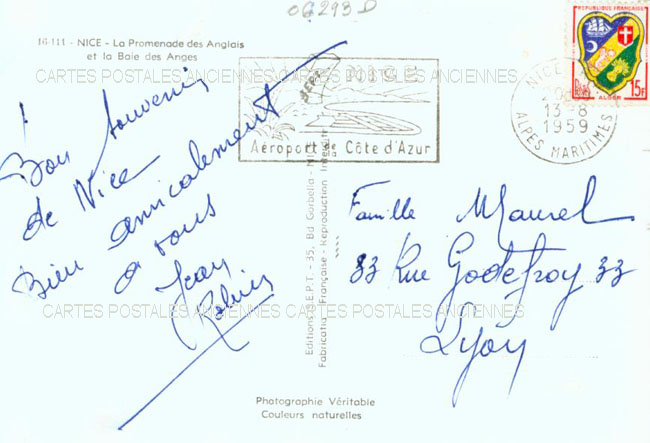 OG293D
16-111 - NICE - La Promenade des Anglais
et la Baie des Anges
CARTES POSTALES ANCIENNES CARTES POSTALES ANCIENNES
NICE
Aéroport de la Côte d'Azur
NICE
13-8
1959
ALPES MARITIMES
REPUBLIQUE FRANÇAISE
Postes
15F
ALGER
Bon souvenir
de Nice
Bien amicalement
à vous
Jean
Editions S.E.P.T. - 35, Bd Gorbella - NICE
Fabrication Française - Reproduction Interdite
Famille Maurel
33 Rue Godefroy 33
Lyon
CARTES POSTALES ANCIENNES CARTES POSTALES ANCIENNES
Photographie Véritable
Couleurs naturelles